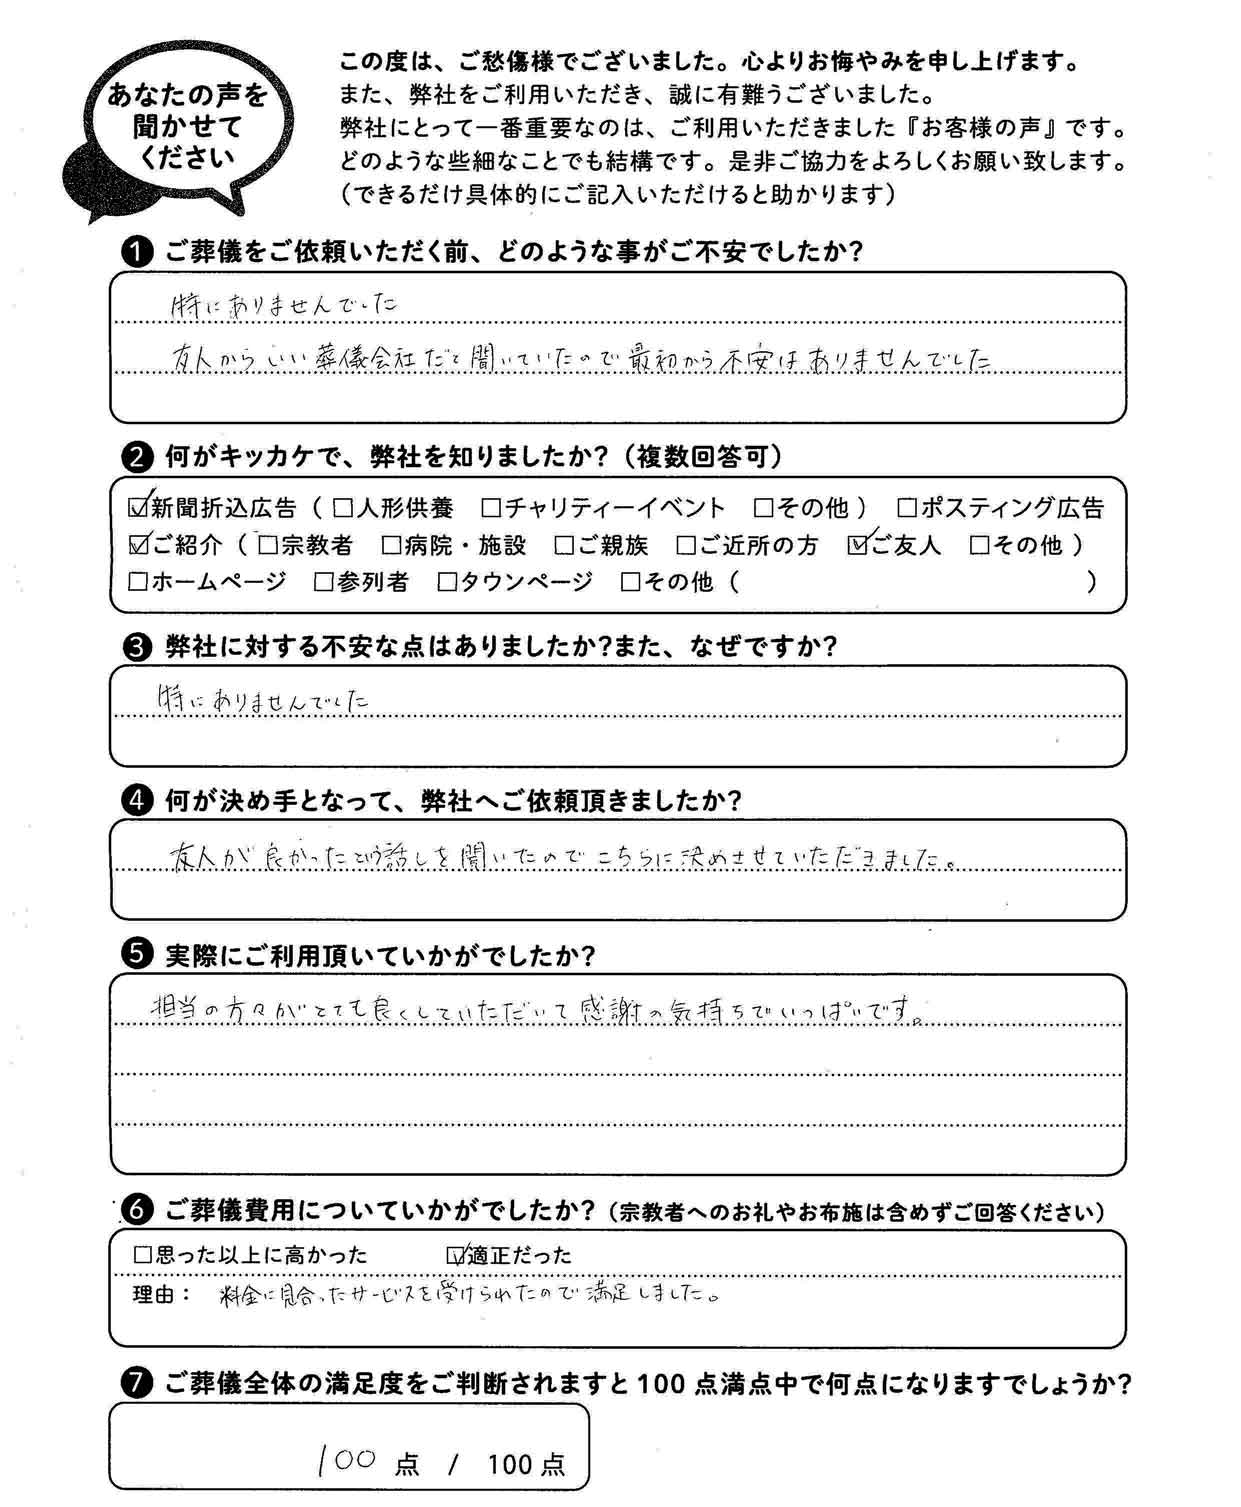 あなたの声を
聞かせて
ください
この度は、ご愁傷様でございました。心よりお悔やみを申し上げます。
また、弊社をご利用いただき、誠に有難うございました。
弊社にとって一番重要なのは、ご利用いただきました『お客様の声』です。
どのような些細なことでも結構です。是非ご協力をよろしくお願い致します。
（できるだけ具体的にご記入いただけると助かります）
❶ ご葬儀をご依頼いただく前、どのような事がご不安でしたか?
特にありませんでした
友人から いい 葬儀会社だと 聞いていたので 最初から 不安は ありませんでした
❷ 何がキッカケで、弊社を知りましたか?（複数回答可）
☑新聞折込広告（□人形供養 □チャリティーイベント □その他） □ポスティング広告
☑ご紹介（□宗教者 □病院・施設 □ご親族 □ご近所の方 ☑ご友人 □その他）
□ホームページ □参列者 □タウンページ □その他（ ）
❸ 弊社に対する不安な点はありましたか?また、なぜですか?
特にありませんでした
❹ 何が決め手となって、弊社へご依頼頂きましたか?
友人が 良かったという話しを 聞いたので こちらに決めさせていただきました。
❺ 実際にご利用頂いていかがでしたか?
担当の方々がとても良くしていただいて 感謝の気持ちでいっぱいです。
❻ ご葬儀費用についていかがでしたか?（宗教者へのお礼やお布施は含めずご回答ください）
□思った以上に高かった ☑適正だった
理由： 料金に見合ったサービスを受けられたので満足しました。
❼ ご葬儀全体の満足度をご判断されますと100点満点中で何点になりますでしょうか?
100 点 / 100点